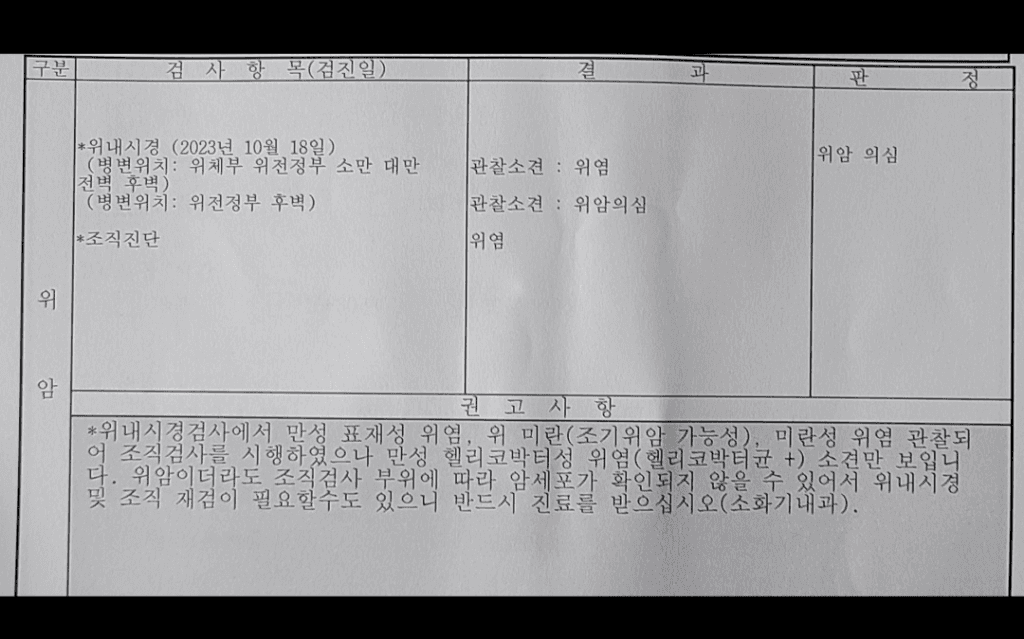 구분 검 사 항 목(검진일) 결 과 판 정
*위내시경 (2023년 10월 18일)
(병변위치: 위체부 위전정부 소만 대만 관찰소견 : 위염 위암 의심
전벽 후벽)
(병변위치: 위전정부 후벽) 관찰소견 : 위암의심
*조직진단 위염
위
암
권 고 사 항
*위내시경검사에서 만성 표재성 위염, 위 미란(조기위암 가능성), 미란성 위염 관찰되
어 조직검사를 시행하였으나 만성 헬리코박터성 위염(헬리코박터균 +) 소견만 보입니
다. 위암이더라도 조직검사 부위에 따라 암세포가 확인되지 않을 수 있어서 위내시경
및 조직 재검이 필요할수도 있으니 반드시 진료를 받으십시오(소화기내과).